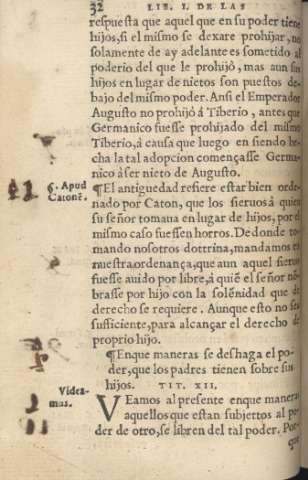 32 LIB. I. DE LAS
respuesta que aquel que en su poder tiene
hijos, si el mismo se dexare prohijar, no
solamente de ay adelante es sometido al
poderio del que le prohijò, mas aun sus
hijos en lugar de nietos son puestos de-
bajo del mismo poder. Ansi el Emperador
Augusto no prohijó á Tiberio, antes que
Germanico fuesse prohijado del mismo
Tiberio, á causa que luego en siendo he-
cha la tal adopcion començasse Germa-
nico à ser nieto de Augusto.
§. Apud
Catonē.
¶El antiguedad refiere estar bien orde-
nado por Caton, que los sieruos à quien
su señor tomaua en lugar de hijos, por el
mismo caso fuessen horros. De donde to-
mando nosotros dottrina, mandamos en
nuestra ordenança, que aun aquel sieruo
fuesse auido por libre, á quiē el señor nō-
brasse por hijo con la solēnidad que de
derecho se requiere. Aunque esto no sea
sufficiente, para alcançar el derecho de
proprio hijo.
¶Enque maneras se deshaga el po-
der, que los padres tienen sobre sus
hijos. TIT. XII.
Videa-
mus.
VEamos al presente enque maneras
aquellos que estan subjettos al po-
der de otro, se libren del tal poder. Por-
que